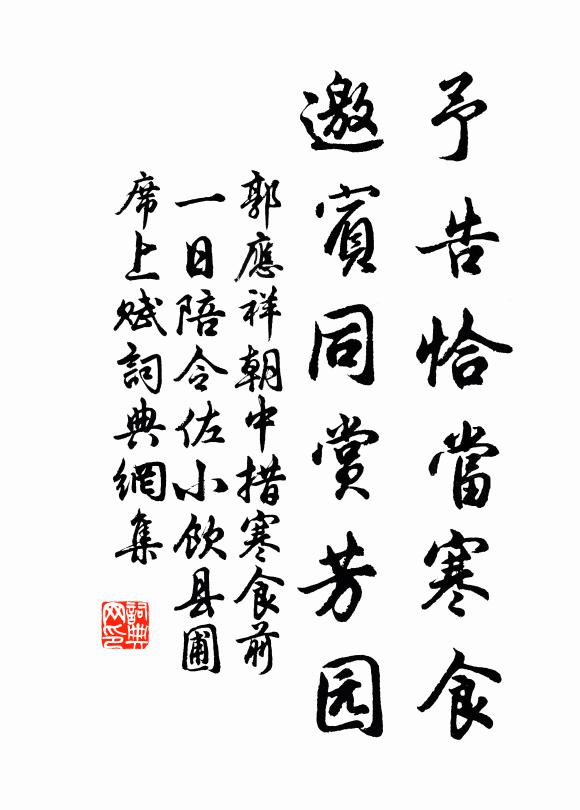 予告恰當寒食
邀賓同賞芳园
郭應祥朝中措寒食前
一日陪令佐小飲县圃
席上赋詞典網集
詞典网印